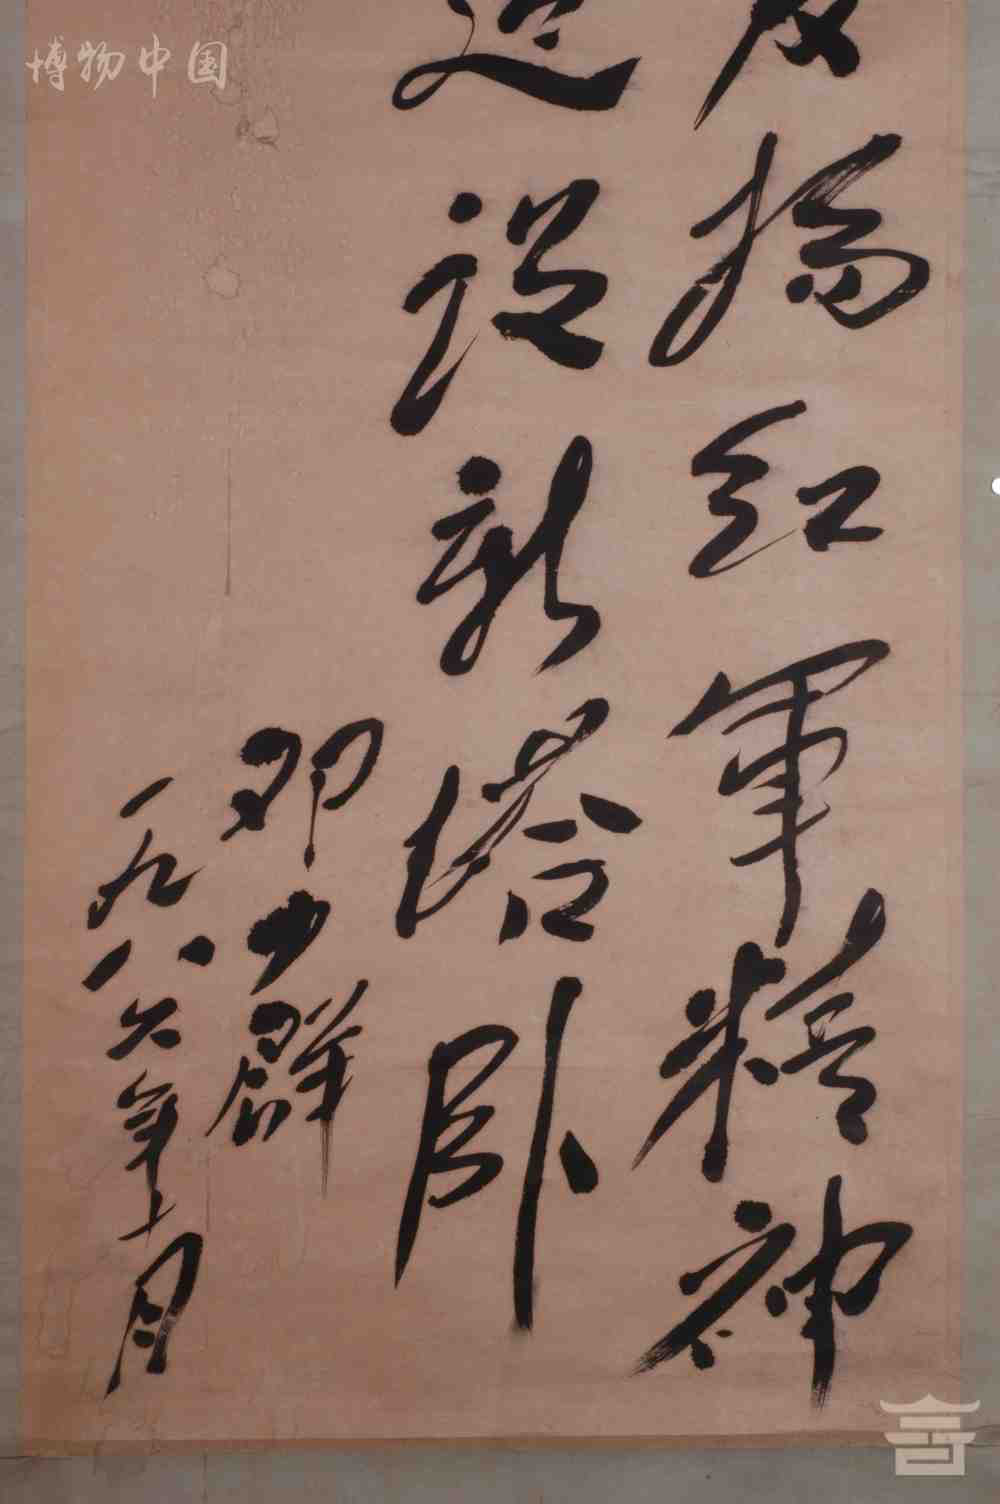 发扬红军精神
建设新塔卧
邓少群
一九八六年十月
博物中国